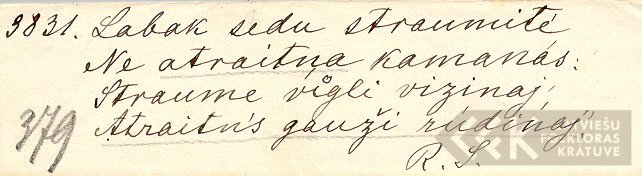 3831. Labak sedu straumitē
Ne atraitņa kamanās:
Straume vīgli vizinaj,
Atraitn's gauži rūdinaj,
379
R. S.
LATVIEŠU
FOLKLORAS
KRĀTUVE